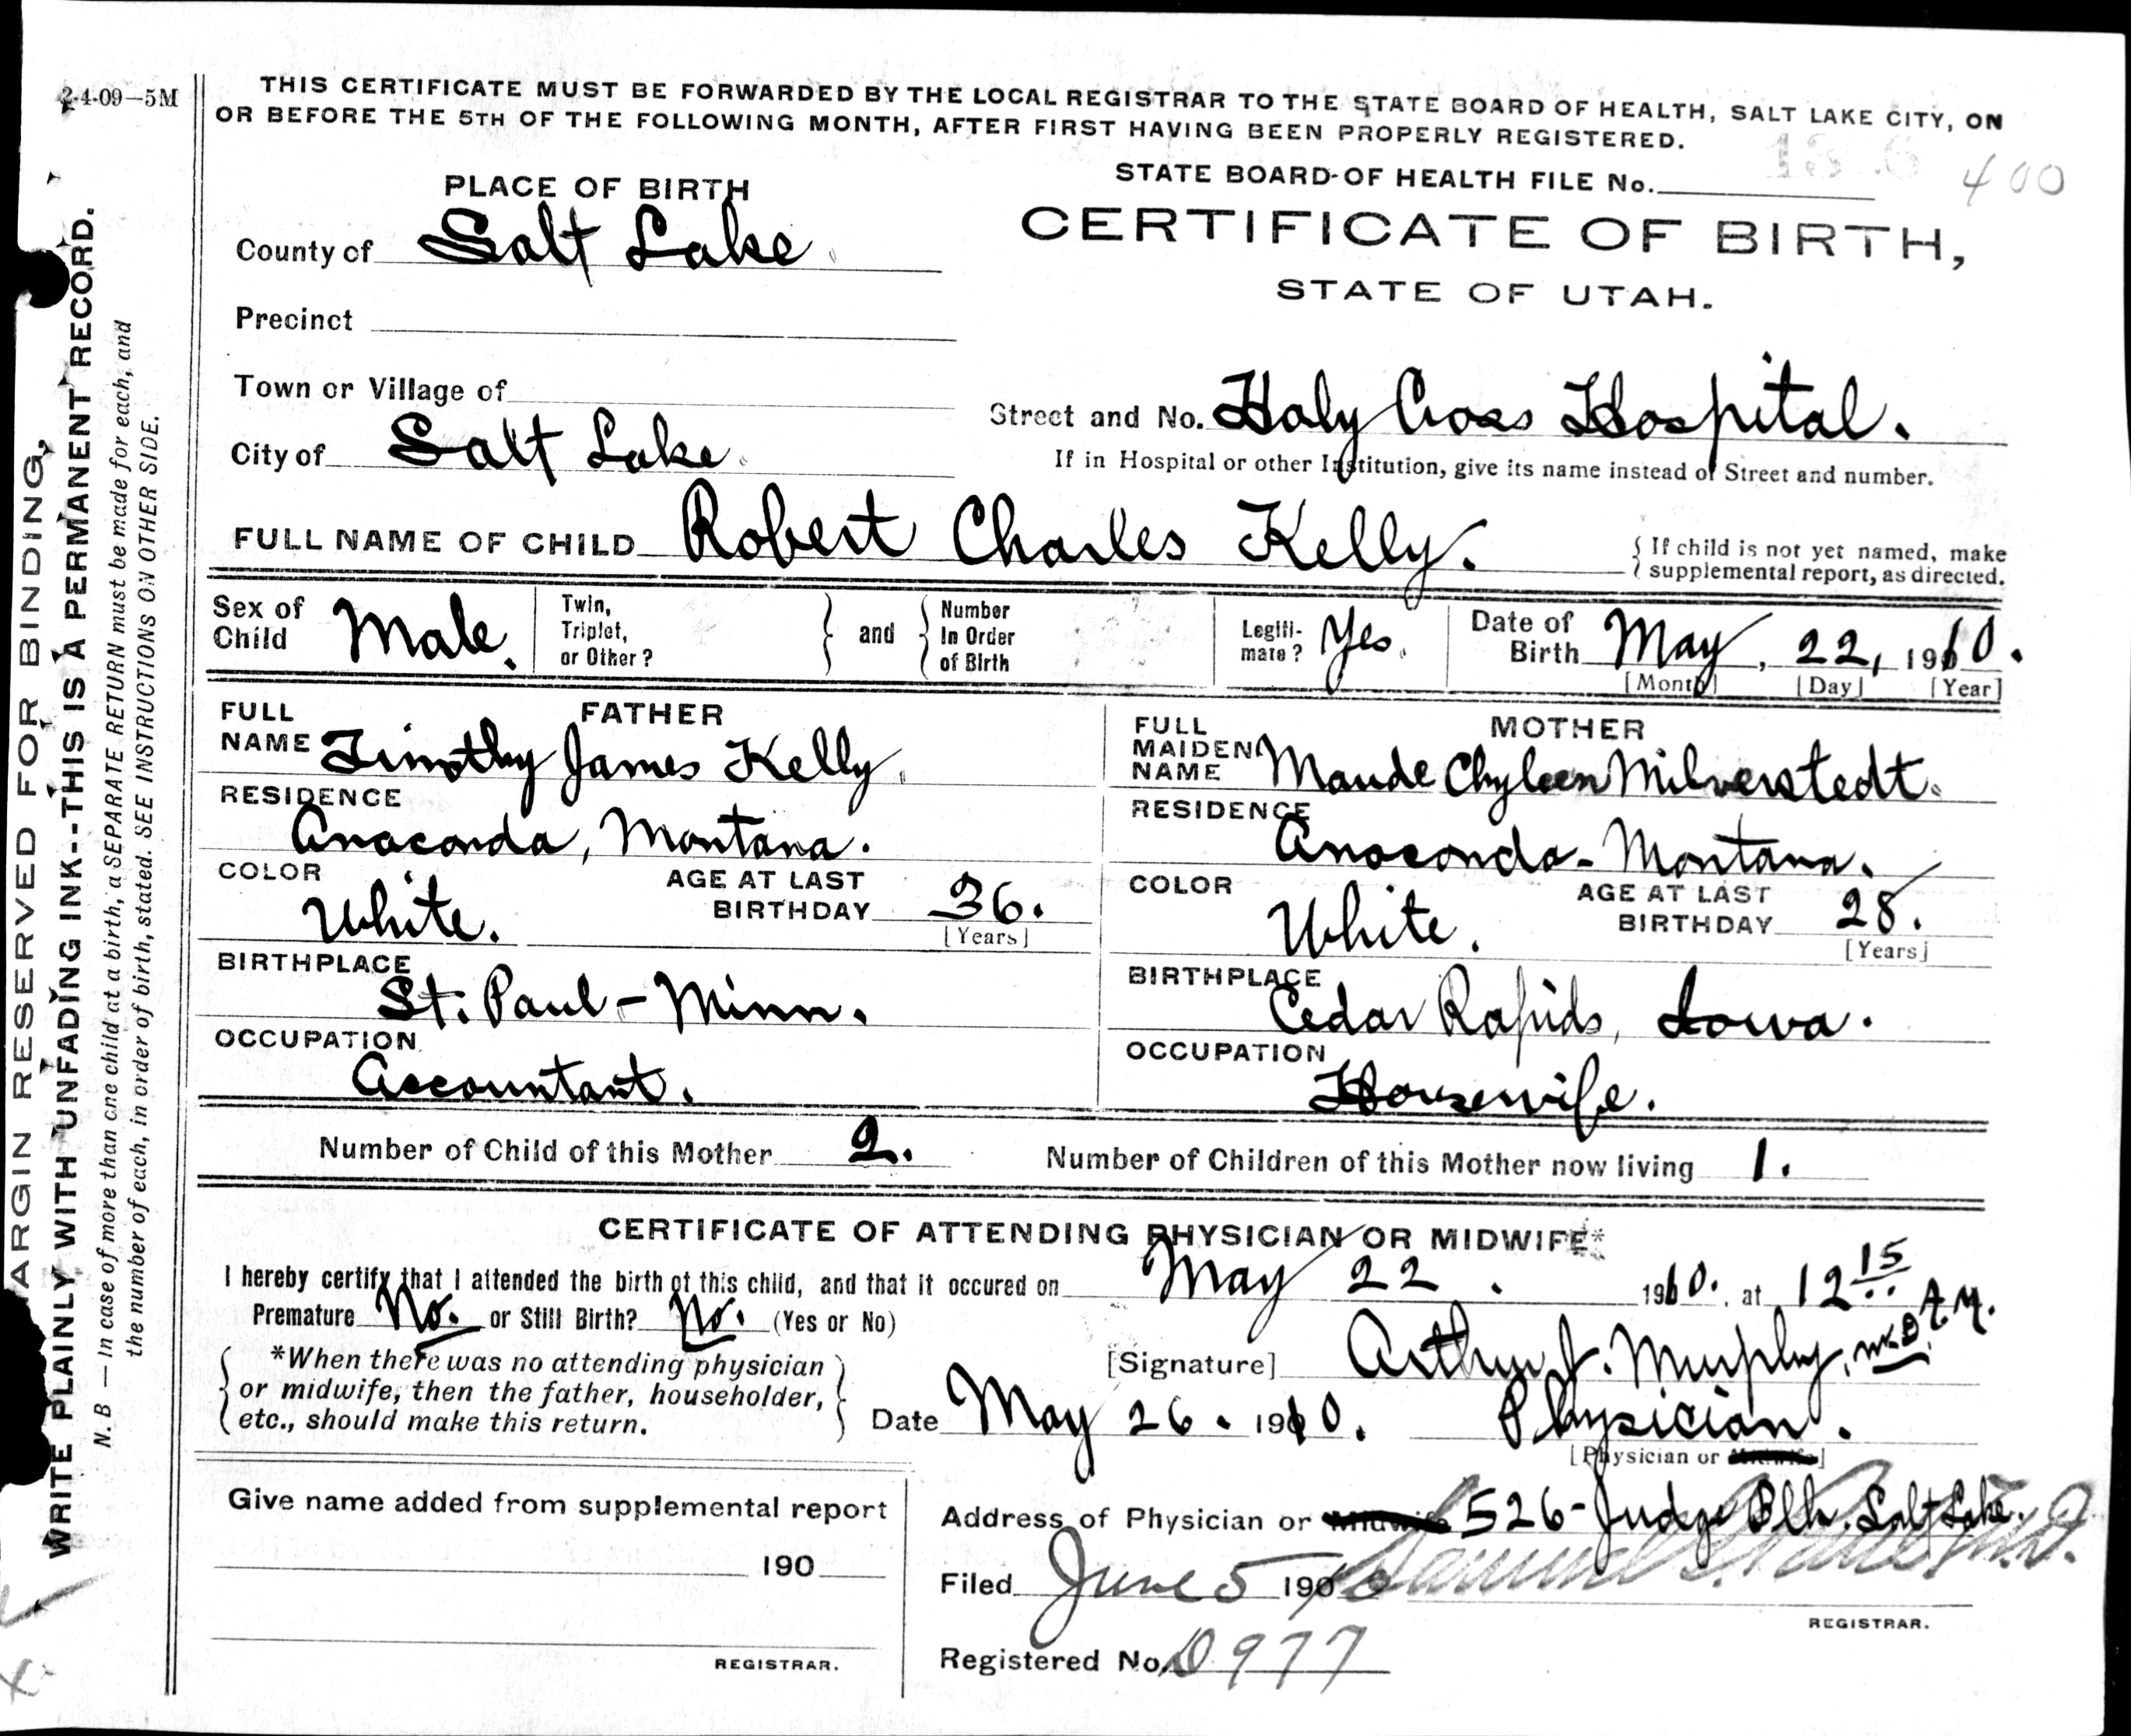 2-4-09—5M
THIS CERTIFICATE MUST BE FORWARDED BY THE LOCAL REGISTRAR TO THE STATE BOARD OF HEALTH, SALT LAKE CITY, ON
OR BEFORE THE 5TH OF THE FOLLOWING MONTH, AFTER FIRST HAVING BEEN PROPERLY REGISTERED.
STATE BOARD OF HEALTH FILE No. 400
CERTIFICATE OF BIRTH,
STATE OF UTAH.
PLACE OF BIRTH
County of Salt Lake
Precinct
Town or Village of
City of Salt Lake
Street and No. Holy Cross Hospital.
If in Hospital or other Institution, give its name instead of Street and number.
FULL NAME OF CHILD Robert Charles Kelly.
{ If child is not yet named, make
supplemental report, as directed.
Sex of Child Male.
Twin, Triplet, or Other? } and { Number In Order of Birth
Legiti-mate? Yes.
Date of Birth May, 22, 1910.
[Month] [Day] [Year]
FATHER
FULL NAME Timothy James Kelly
RESIDENCE
Anaconda, Montana.
COLOR White.
AGE AT LAST BIRTHDAY 36.
[Years]
BIRTHPLACE
St. Paul - Minn.
OCCUPATION
Accountant.
MOTHER
FULL MAIDEN NAME Maude Chyleen Milverstedt.
RESIDENCE
Anaconda - Montana.
COLOR White.
AGE AT LAST BIRTHDAY 28.
[Years]
BIRTHPLACE
Cedar Rapids, Iowa.
OCCUPATION
Housewife.
Number of Child of this Mother 2. Number of Children of this Mother now living 1.
CERTIFICATE OF ATTENDING PHYSICIAN OR MIDWIFE*
I hereby certify that I attended the birth of this child, and that it occured on May 22. 1910. at 12 15 A.M.
Premature No. or Still Birth? No. (Yes or No)
*When there was no attending physician
or midwife, then the father, householder,
etc., should make this return.
[Signature] Arthur J. Murphy, M.D.
Date May 26. 1910. Physician.
[Physician or Midwife]
Give name added from supplemental report
190
REGISTRAR.
Address of Physician or Midwife 526 - Judge Blk. Salt Lake.
Filed June 5 1910
REGISTRAR.
Registered No. 977
MARGIN RESERVED FOR BINDING,
WRITE PLAINLY WITH UNFADING INK--THIS IS A PERMANENT RECORD.
N. B — In case of more than one child at a birth, a SEPARATE RETURN must be made for each, and
the number of each, in order of birth, stated. SEE INSTRUCTIONS ON OTHER SIDE.